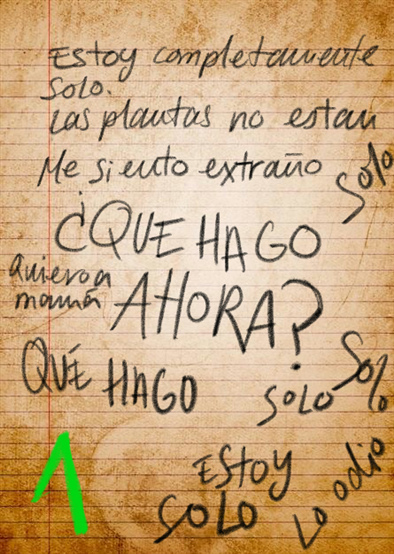 Estoy completamente
solo.
Las plantas no estan
Me siento extraño
Solo
¿QUE HAGO
Quiero a
mamá
AHORA?
QUÉ HAGO
SOLO
Solo
1
ESTOY
SOLO
Lo odio